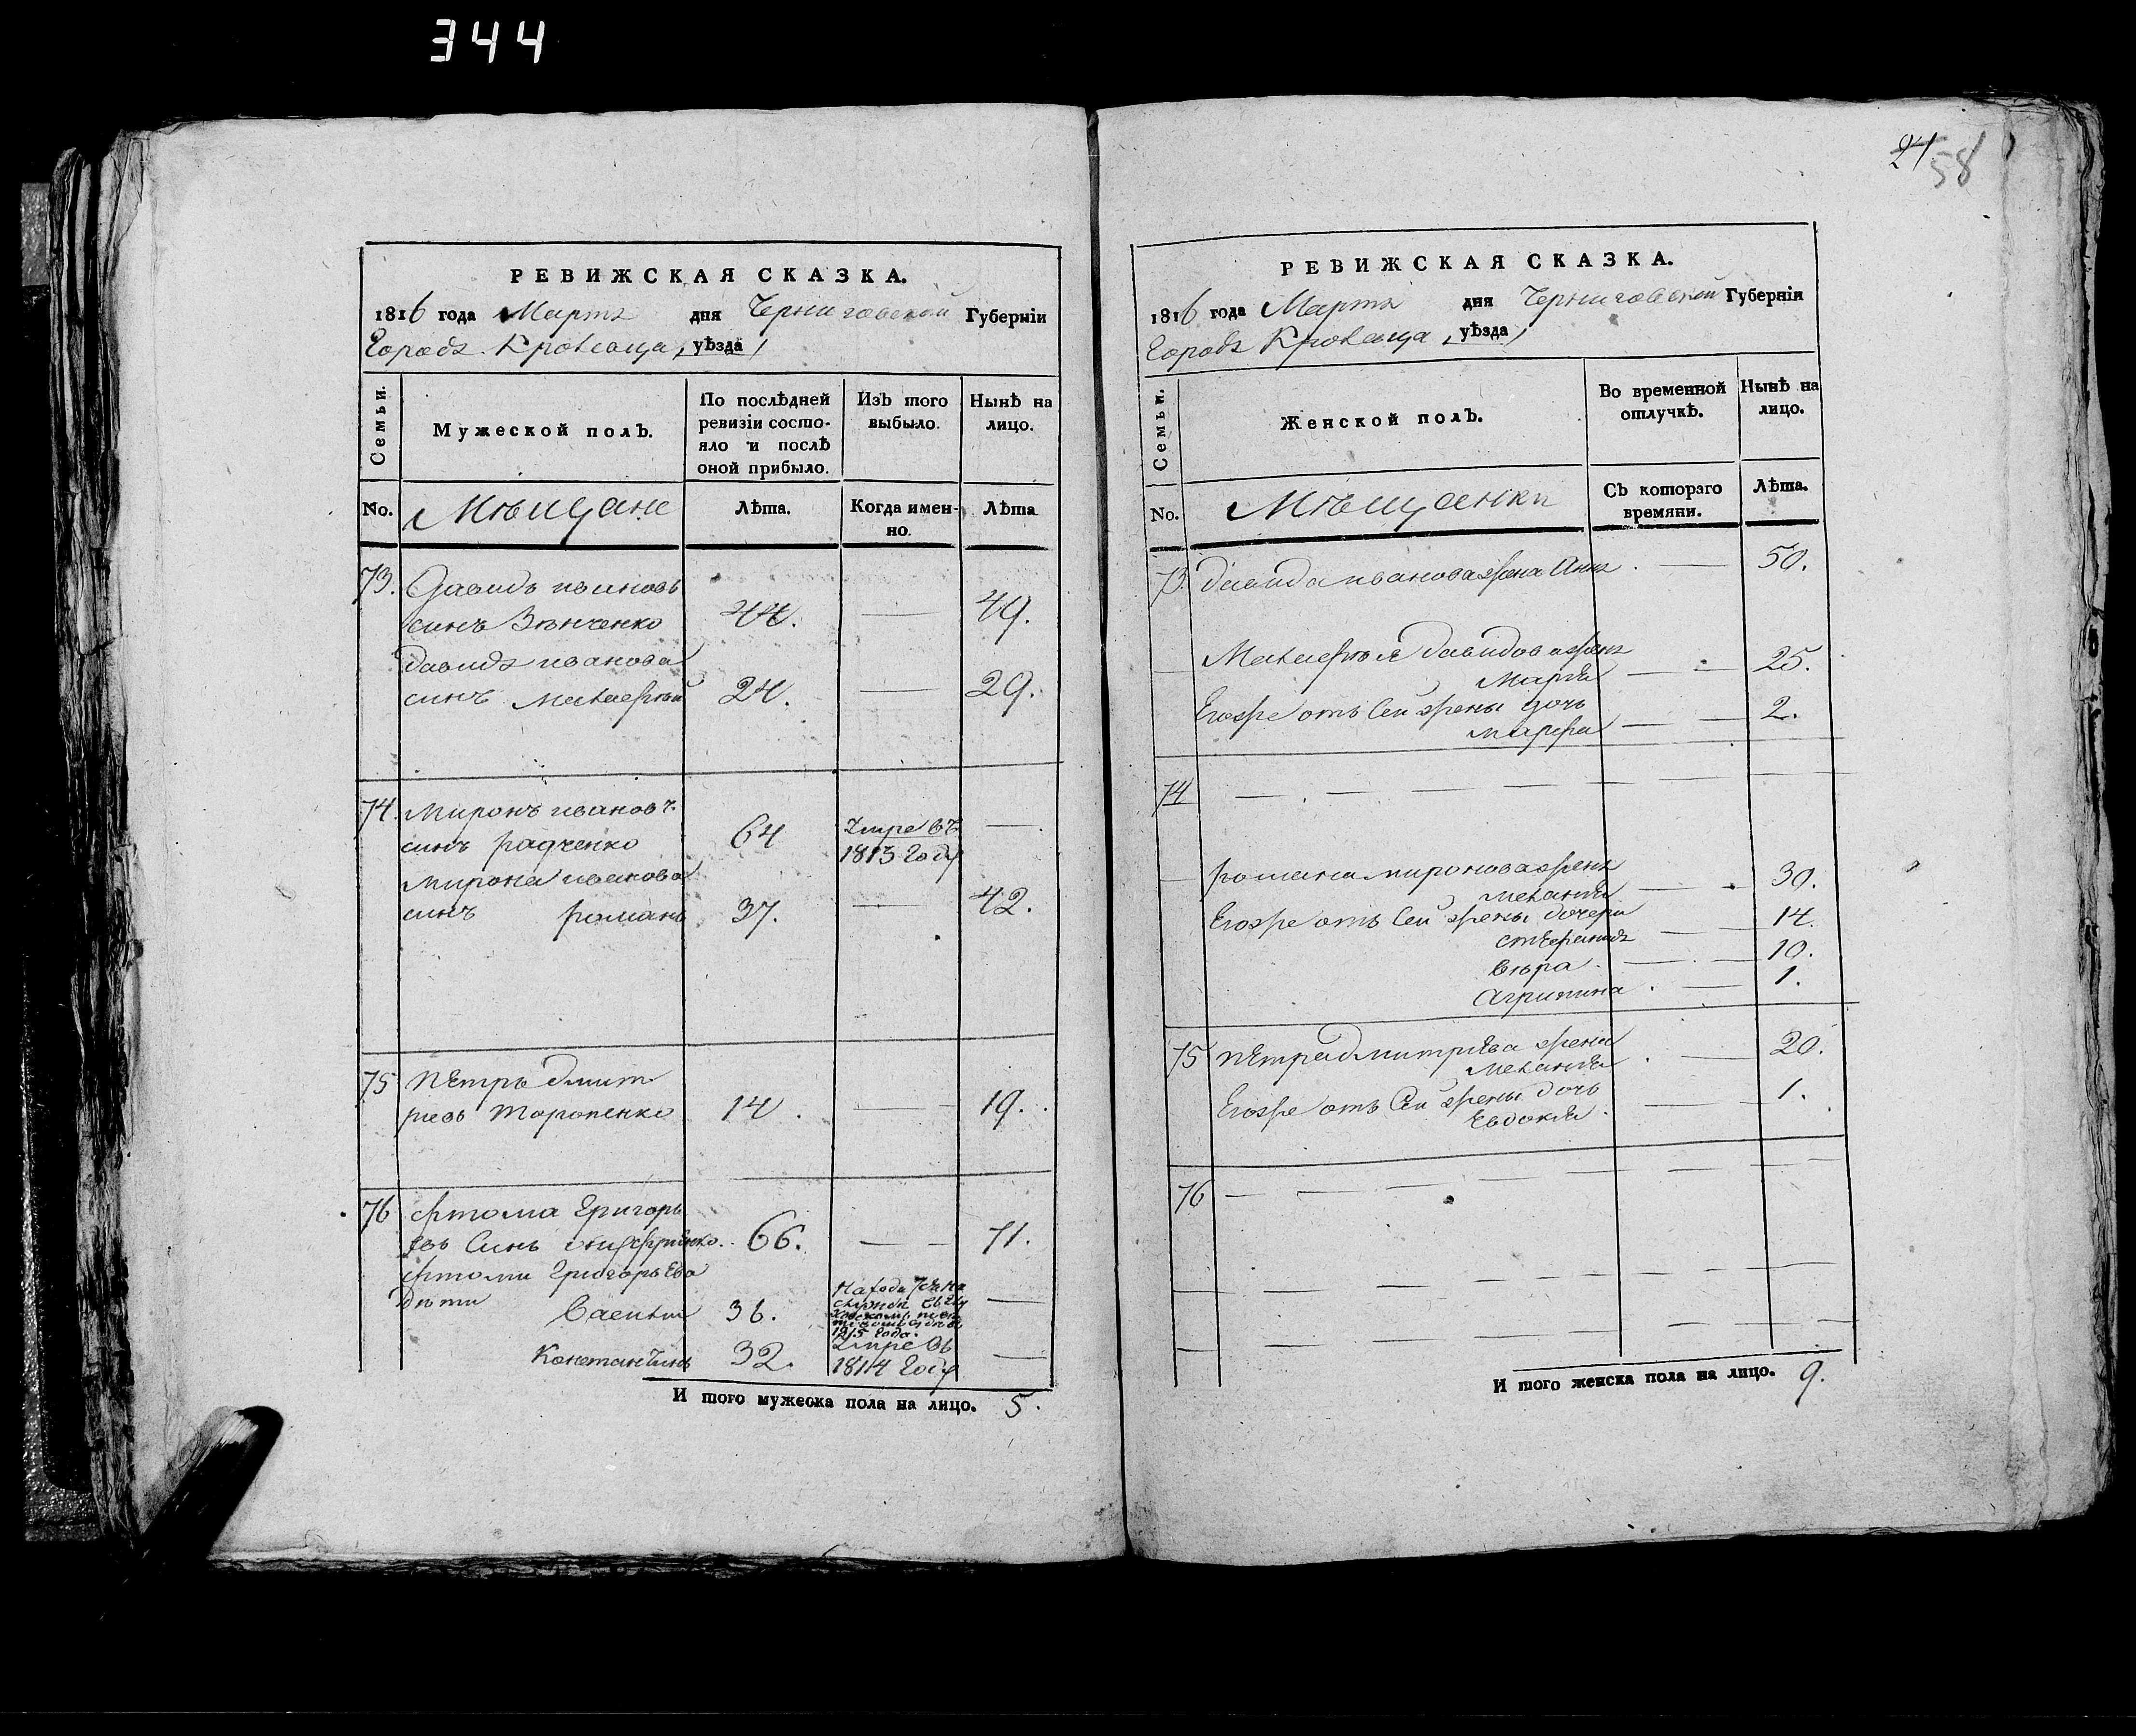 344
21 58
РЕВИЖСКАЯ СКАЗКА.
1816 года Марта дня Черниговской Губерніи
Городъ Кролевца, уѣзда,
Семьи.
Мужеской полъ.
По послѣдней ревизіи состояло и послѣ оной прибыло.
Изъ того выбыло.
Нынѣ на лицо.
No.
Мѣщане
Лѣта.
Когда именно.
Лѣта
73. Давидъ ивановъ
синъ Зѣнченко 44. — 49.
Давида иванова
синъ 24. — 29.
74. Миронъ ивановъ
синъ радченко 64 Умре въ 1813 году —
Мирона иванова
синъ романъ 37. — 42.
75 Петръ дмит
риевъ Тороненко 14. — 19.
76 Фтома Григорь
евъ Синъ 66. — 71.
Фтоми Григорьева
дѣти
36. —
1815 года.
Константинъ 32. Умре въ 1814 году —
И того мужеска пола на лицо. 5.
РЕВИЖСКАЯ СКАЗКА.
1816 года Марта дня Черниговской Губерніи
Городъ Кролевца, уѣзда,
Семьи.
Женской полъ.
Во временной отлучкѣ.
Нынѣ на лицо.
No.
Мѣщанки
Съ котораго времяни.
Лѣта.
73. Давида иванова жена Анна — 50.
Давидова жена
Марія — 25.
Егоже отъ Сей жены дочь
марфа — 2.
74
романа миронова жена
меланія — 30.
Егоже отъ Сей жены дочери
стефанида — 14.
вѣра — 10.
Агрипина — 1.
75 петра дмитриева жена
меланія — 20.
Егоже отъ Сей жены дочь
Евдокія — 1.
76
И того женска пола на лицо. 9.